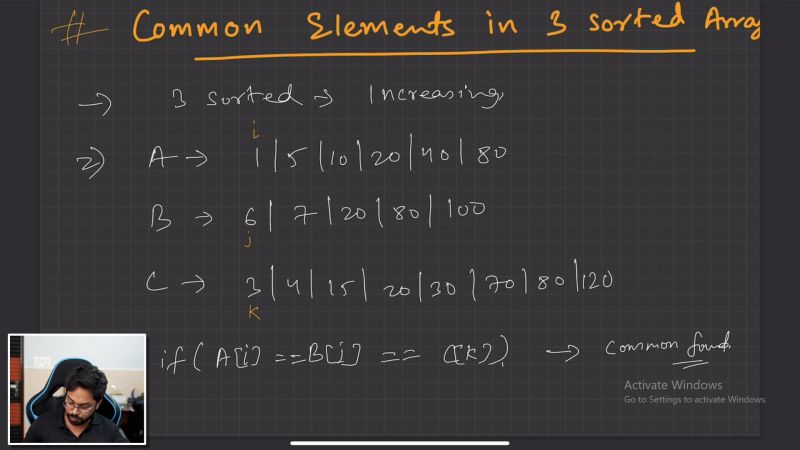 # Common Elements in 3 sorted Array
→ 3 sorted → Increasing
i
2) A → 1 | 5 | 10 | 20 | 40 | 80
B → 6 | 7 | 20 | 80 | 100
j
C → 3 | 4 | 15 | 20 | 30 | 70 | 80 | 120
K
if( A[i] == B[j] == C[k]) → common found
Activate Windows
Go to Settings to activate Windows.